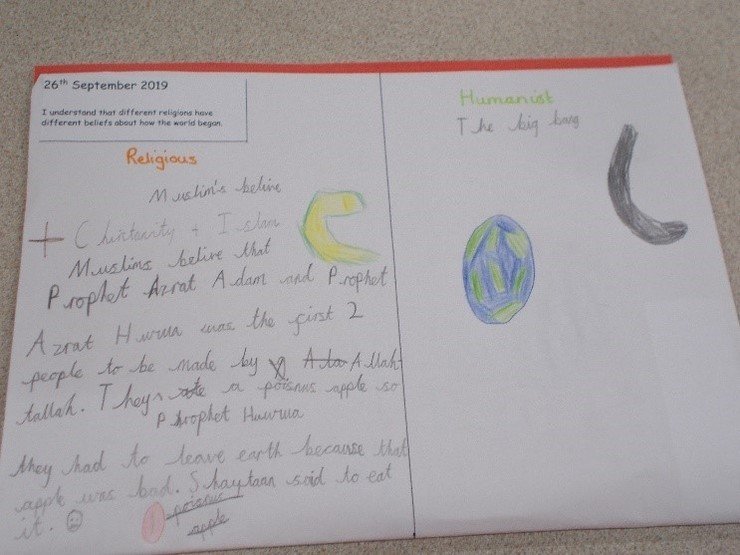 26th September 2019
I understand that different religions have
different beliefs about how the world began.
Religious
Muslim's belive
Christanity + Islam
Muslims belive that
Prophet Azrat Adam and Prophet
Azrat Huwua was the first 2
people to be made by Allah
tallah. They ate a poisnus apple so
Prophet Huwua
they had to leave earth because that
apple was bad. Shaytaan said to eat
it.
poisnus
apple
Humanist
The big bang